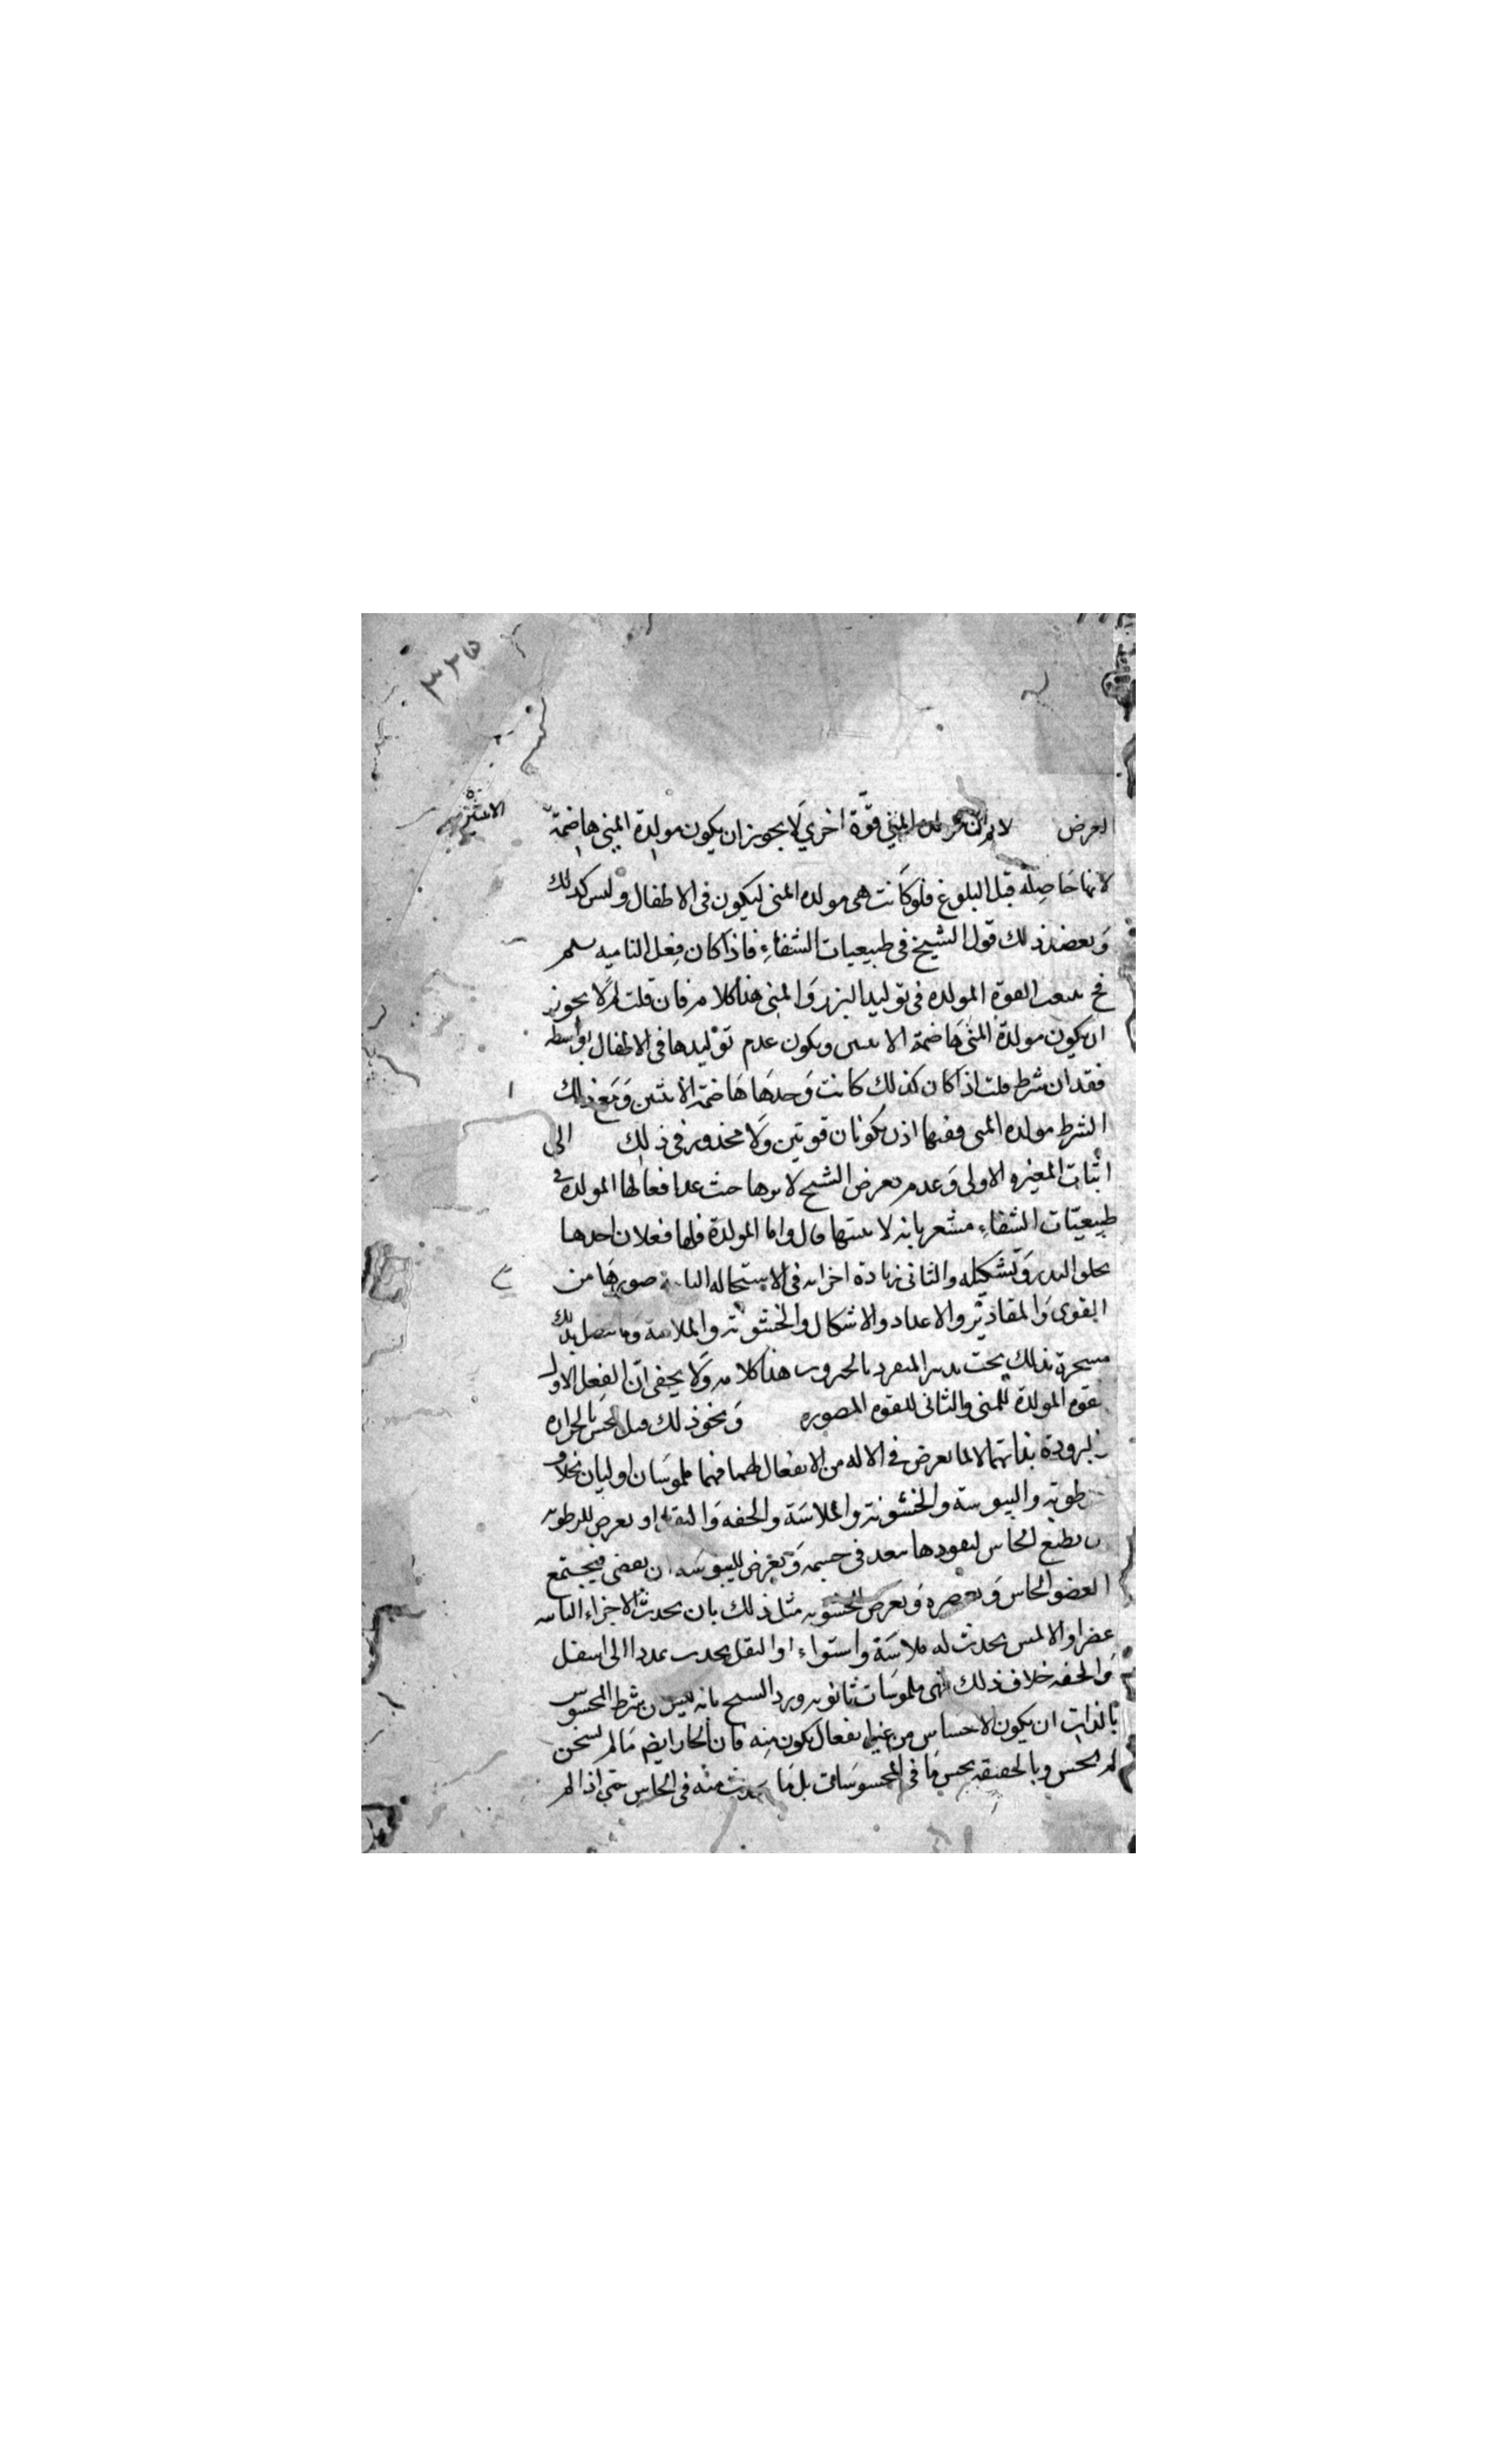 ٣٣٥
لعرض لا المني قوة اخري لا يجوز ان يكون مولدة المني هاضمة
الانثيين
لانها حاصله قبل البلوغ فلو كانت هي مولده المني ليكون في الاطفال وليس كذلك
وبعضد ذلك قول الشيخ في طبيعيات الشفاء فاذا كان فعل الناميه
القوة المولده في توليد البزر والمني هذا كلامه فان قلت لم لا يجوز
ان يكون مولدة المني هاضمة الانثيين ويكون عدم توليدها في الاطفال بواسطه
فقدان شرط قلت اذا كان كذلك كانت وحدها هاضمة الانثيين ومع ذلك
الشرط مولده المني ففيها اذن يكونان قوتين ولا محذور في ذلك الى
اثبات المغيره الاولى وعدم تعرض الشيخ لا حيث عد افعالها المولدة في
طبيعيات الشفاء مشعر بانه لا يثبتها قال واما المولدة فلها فعلان احدها
وتشكيله والثاني زيادة اجزاء في الاستحاله صورها من
القوى والمقادير والاعداد والاشكال والخشونة والملاسة وما يتصل بذلك
مسخرة بذلك تحت المتفرد بالجبروت هذا كلامه ولا يخفى ان الفعل الاول
بقوه المولدة للمني والثاني للقوه المصوره ونحو ذلك قيل يحس بالحراره
البرودة بذاتهما لا لما يعرض في الاله من الانفعال بهما فهما ملموسان اوليان بخلاف
طوبة واليبوسة والخشونة والملاسة والخفه والثقل او يعرض للرطوبه
ان يطيع الحاس لنفوذها في جسمه ويعرض لليبوسه ان يعصى فيجتمع
العضو الحاس ويعصره ويعرض للخشونه مثل ذلك بان يحدث الاجزاء الناتيه
عصرا والاملس يحدث له ملاسة واستواء او الثقل يحدث تمددا الى اسفل
والخفه خلاف ذلك فهي ملموسات ثانويه ورد الشيخ بانه ليس من شرط المحسوس
بالذات ان يكون الاحساس من غير انفعال يكون منه فان الحار ايضا ما لم يسخن
لم يحس وبالحقيقه يحس ما في المحسوسات بل ما يحدث منه في الحاس حتى اذا لم